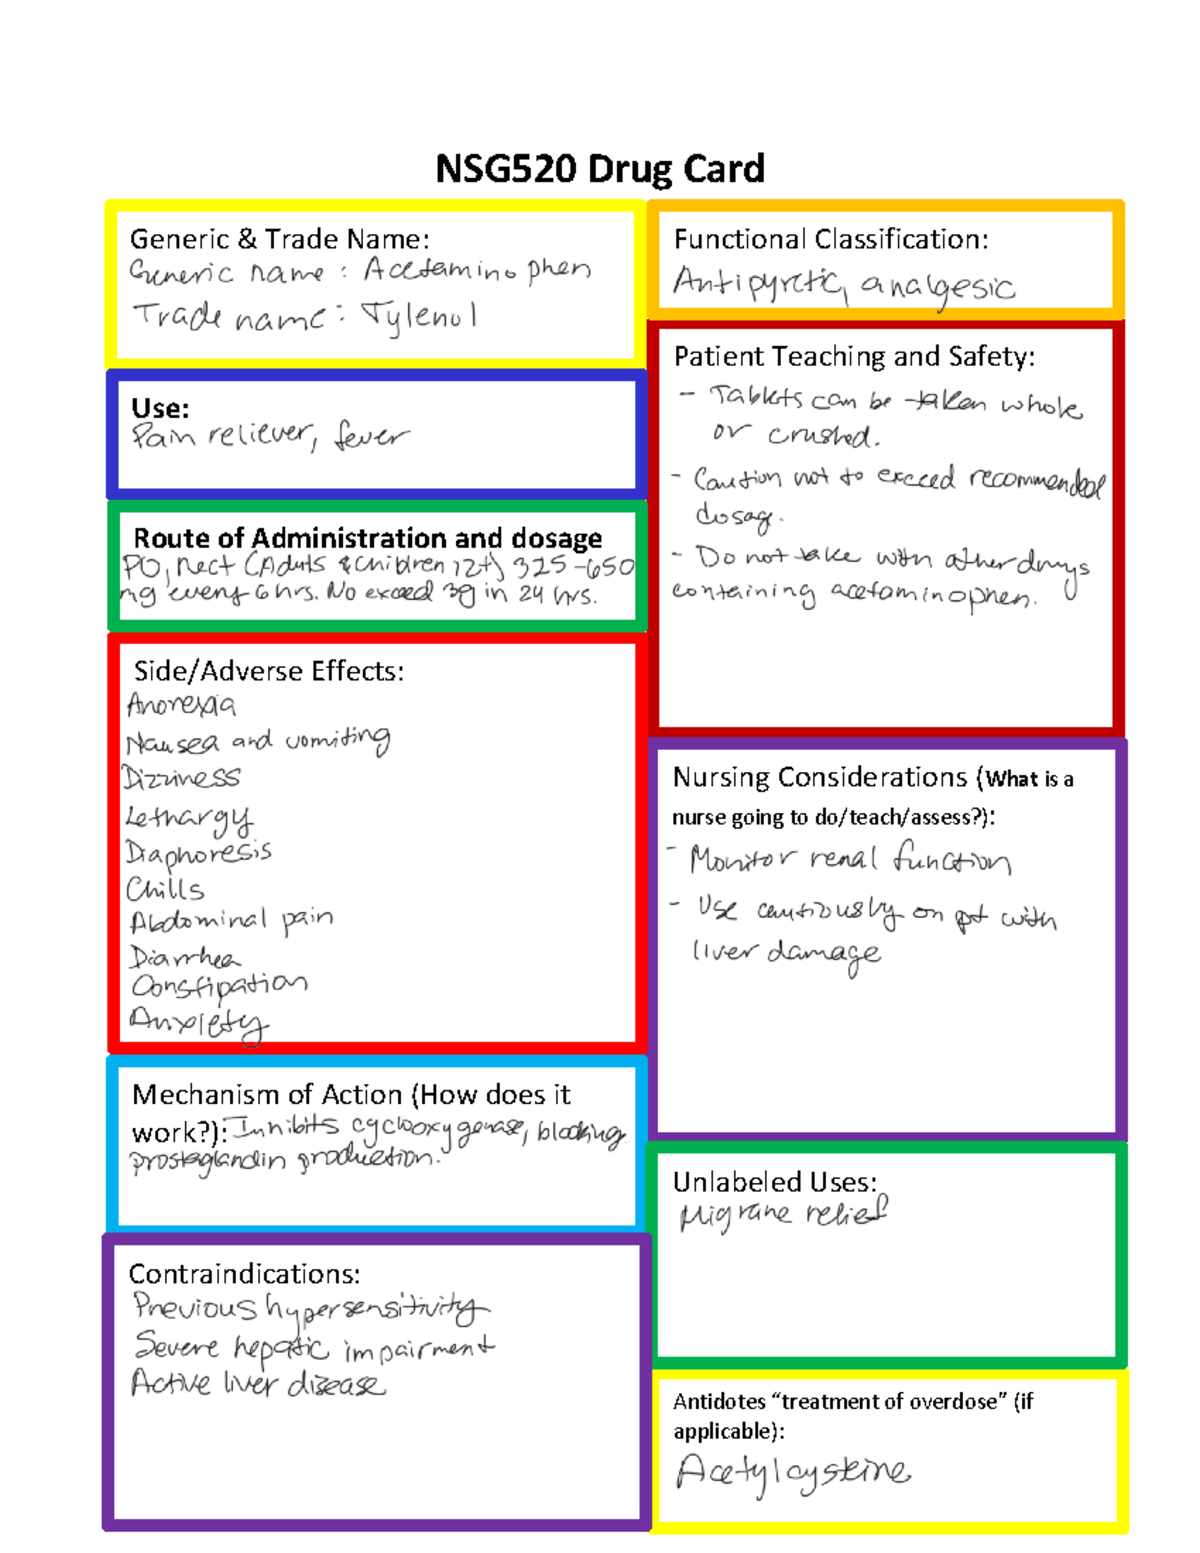 NSG520 Drug Card
Generic & Trade Name:
Generic name: Acetaminophen
Trade name: Tylenol
Use:
Pain reliever, fever
Route of Administration and dosage
PO, Rect (Adults & children 12+) 325-650
mg every 6 hrs. No exceed 3g in 24 hrs.
Side/Adverse Effects:
Anorexia
Nausea and vomiting
Dizziness
Lethargy
Diaphoresis
Chills
Abdominal pain
Diarrhea
Constipation
Anxiety
Mechanism of Action (How does it
work?): Inhibits cyclooxygenase, blocking
prostaglandin production.
Contraindications:
Previous hypersensitivity
Severe hepatic impairment
Active liver disease
Functional Classification:
Antipyretic, analgesic
Patient Teaching and Safety:
- Tablets can be taken whole
or crushed.
- Caution not to exceed recommended
dosag.
- Do not take with other drugs
containing acetaminophen.
Nursing Considerations (What is a
nurse going to do/teach/assess?):
- Monitor renal function
- Use cautiously on pt with
liver damage
Unlabeled Uses:
Migrane relief
Antidotes “treatment of overdose” (if
applicable):
Acetylcysteine